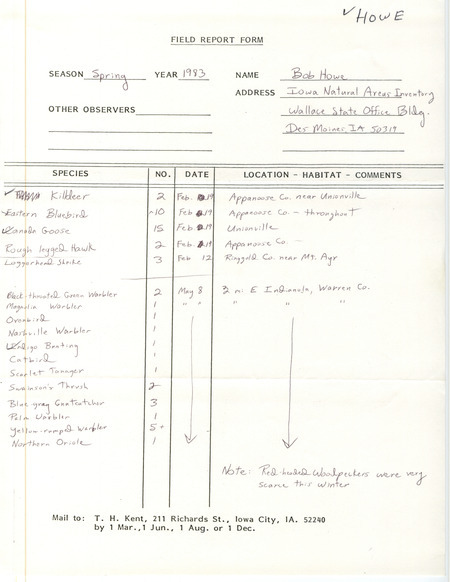 ✓HOWE
FIELD REPORT FORM
SEASON Spring YEAR 1983 NAME Bob Howe
ADDRESS Iowa Natural Areas Inventory
OTHER OBSERVERS Wallace State Office Bldg.
Des Moines, IA 50319
SPECIES NO. DATE LOCATION - HABITAT - COMMENTS
✓ Killdeer 2 Feb. 19 Appanoose Co. near Unionville
✓Eastern Bluebird ~10 Feb 19 Appanoose Co. - throughout
✓Canada Goose 15 Feb 19 Unionville
Rough legged Hawk 2 Feb. 19 Appanoose Co. -
Loggerhead Shrike 3 Feb 12 Ringgold Co. near Mt. Ayr
Black-throated Green Warbler 2 May 8 3 mi E Indianola, Warren Co.
Magnolia Warbler 1 " " " " "
Ovenbird 1
Nashville Warbler 1
✓Indigo Bunting 1
Catbird 1
Scarlet Tanager 1
Swainson's Thrush 2
Blue gray Gnatcatcher 3
Palm Warbler 1
Yellow-rumped Warbler 5+
Northern Oriole 1
Note: Red-headed Woodpeckers were very
scarce this winter
Mail to: T. H. Kent, 211 Richards St., Iowa City, IA. 52240
by 1 Mar., 1 Jun., 1 Aug. or 1 Dec.